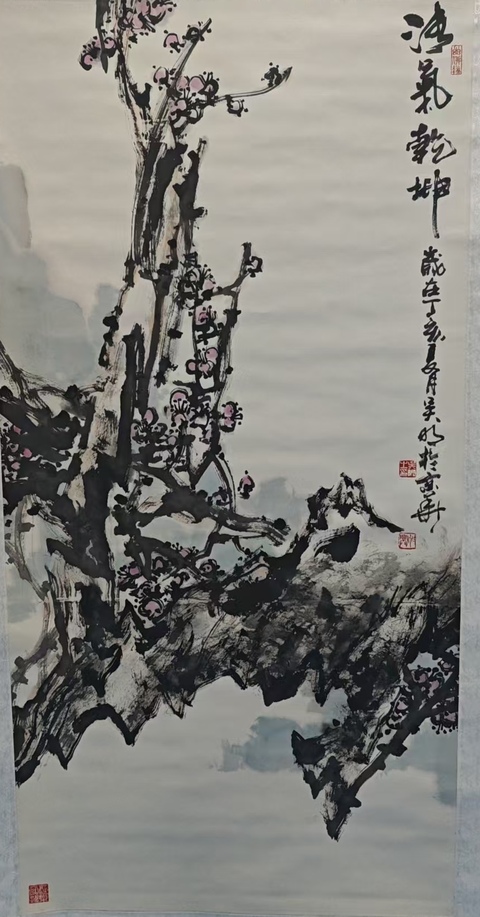 清氣乾坤
歲在丁亥夏月吴於京華